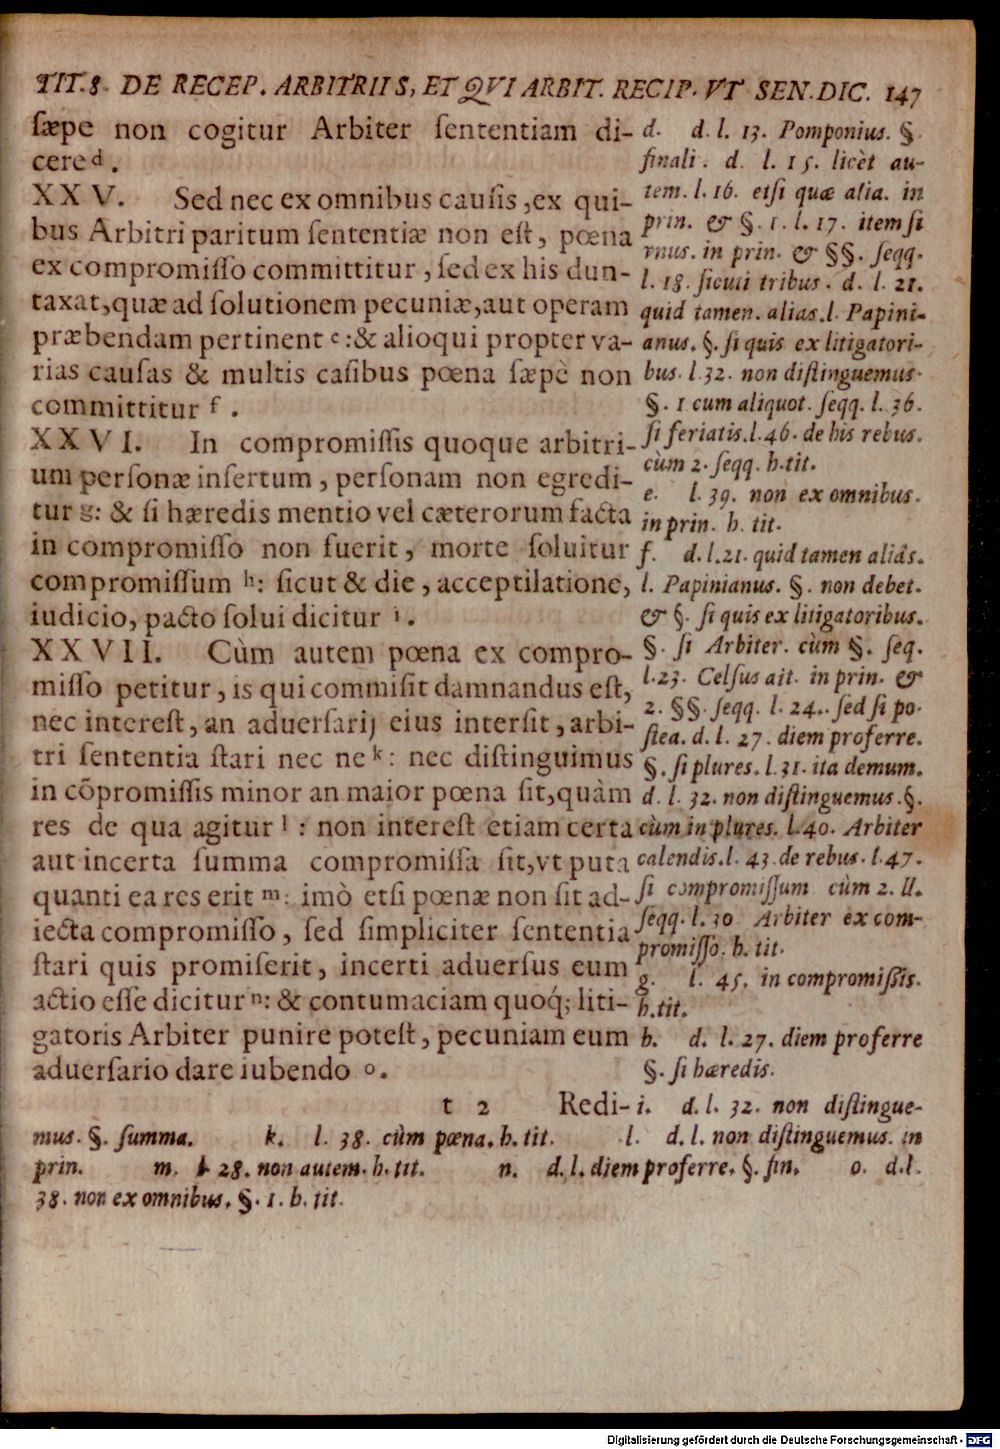 TIT.8. DE RECEP. ARBITRIIS, ET QVI ARBIT. RECIP. VT SEN. DIC. 147
sæpe non cogitur Arbiter sententiam di-
cere d .
XXV. Sed nec ex omnibus causis, ex qui-
bus Arbitri paritum sententiæ non est, pœna
ex compromisso committitur, sed ex his dun-
taxat, quæ ad solutionem pecuniæ, aut operam
præbendam pertinent e : & alioqui propter va-
rias causas & multis casibus pœna sæpè non
committitur f .
XXVI. In compromissis quoque arbitri-
um personæ insertum, personam non egredi-
tur g: & si hæredis mentio vel cæterorum facta
in compromisso non fuerit, morte soluitur
compromissum h: sicut & die, acceptilatione,
iudicio, pacto solui dicitur i .
XXVII. Cùm autem pœna ex compro-
misso petitur, is qui commisit damnandus est,
nec interest, an aduersarij eius intersit, arbi-
tri sententia stari nec ne k : nec distinguimus
in cõpromissis minor an maior pœna sit, quàm
res de qua agitur l : non interest etiam certa
aut incerta summa compromissa sit, vt puta
quanti ea res erit m: imò etsi pœnæ non sit ad-
iecta compromisso, sed simpliciter sententia
stari quis promiserit, incerti aduersus eum
actio esse dicitur n: & contumaciam quoq; liti-
gatoris Arbiter punire potest, pecuniam eum
aduersario dare iubendo o.
t 2 Redi-
d. d. l. 13. Pomponius. §.
finali. d. l. 15. licèt au-
tem. l. 16. etsi quæ alia. in
prin. & §. 1. l. 17. item si
vnus. in prin. & §§. seqq.
l. 18. sicuti tribus. d. l. 21.
quid tamen. alias. l. Papini-
anus. §. si quis ex litigatori-
bus. l. 32. non distinguemus.
§. 1 cum aliquot. seqq. l. 36.
si feriatis. l. 46. de his rebus.
cùm 2. seqq. h. tit.
e. l. 39. non ex omnibus.
in prin. h. tit.
f. d. l. 21. quid tamen aliàs.
l. Papinianus. §. non debet.
& §. si quis ex litigatoribus.
§. si Arbiter. cùm §. seq.
l. 23. Celsus ait. in prin. &
2. §§. seqq. l. 24. sed si po-
stea. d. l. 27. diem proferre.
§. si plures. l. 31. ita demum.
d. l. 32. non distinguemus. §.
cùm in plures. l. 40. Arbiter
calendis. l. 43. de rebus. l. 47.
si compromissum cùm 2. ll.
seqq. l. 30 Arbiter ex com-
promisso. h. tit.
g. l. 45. in compromissis.
h. tit.
h. d. l. 27. diem proferre
§. si hæredis.
i. d. l. 32. non distingue-
mus. §. summa. k. l. 38. cùm pœna. h. tit. l. d. l. non distinguemus. in
prin. m. l. 28. non autem. h. tit. n. d. l. diem proferre. §. fin. o. d. l.
38. non ex omnibus. §. 1. h. tit.
Digitalisierung gefördert durch die Deutsche Forschungsgemeinschaft - DFG